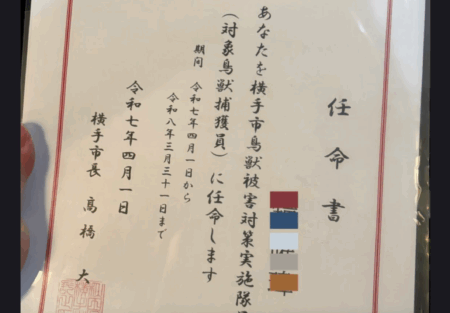 任命書
あなたを横手市鳥獣被害対策実施隊
（対象鳥獣捕獲員）に任命します
期間
令和七年四月一日から
令和八年三月三十一日まで
令和七年四月一日
横手市長 高橋 大